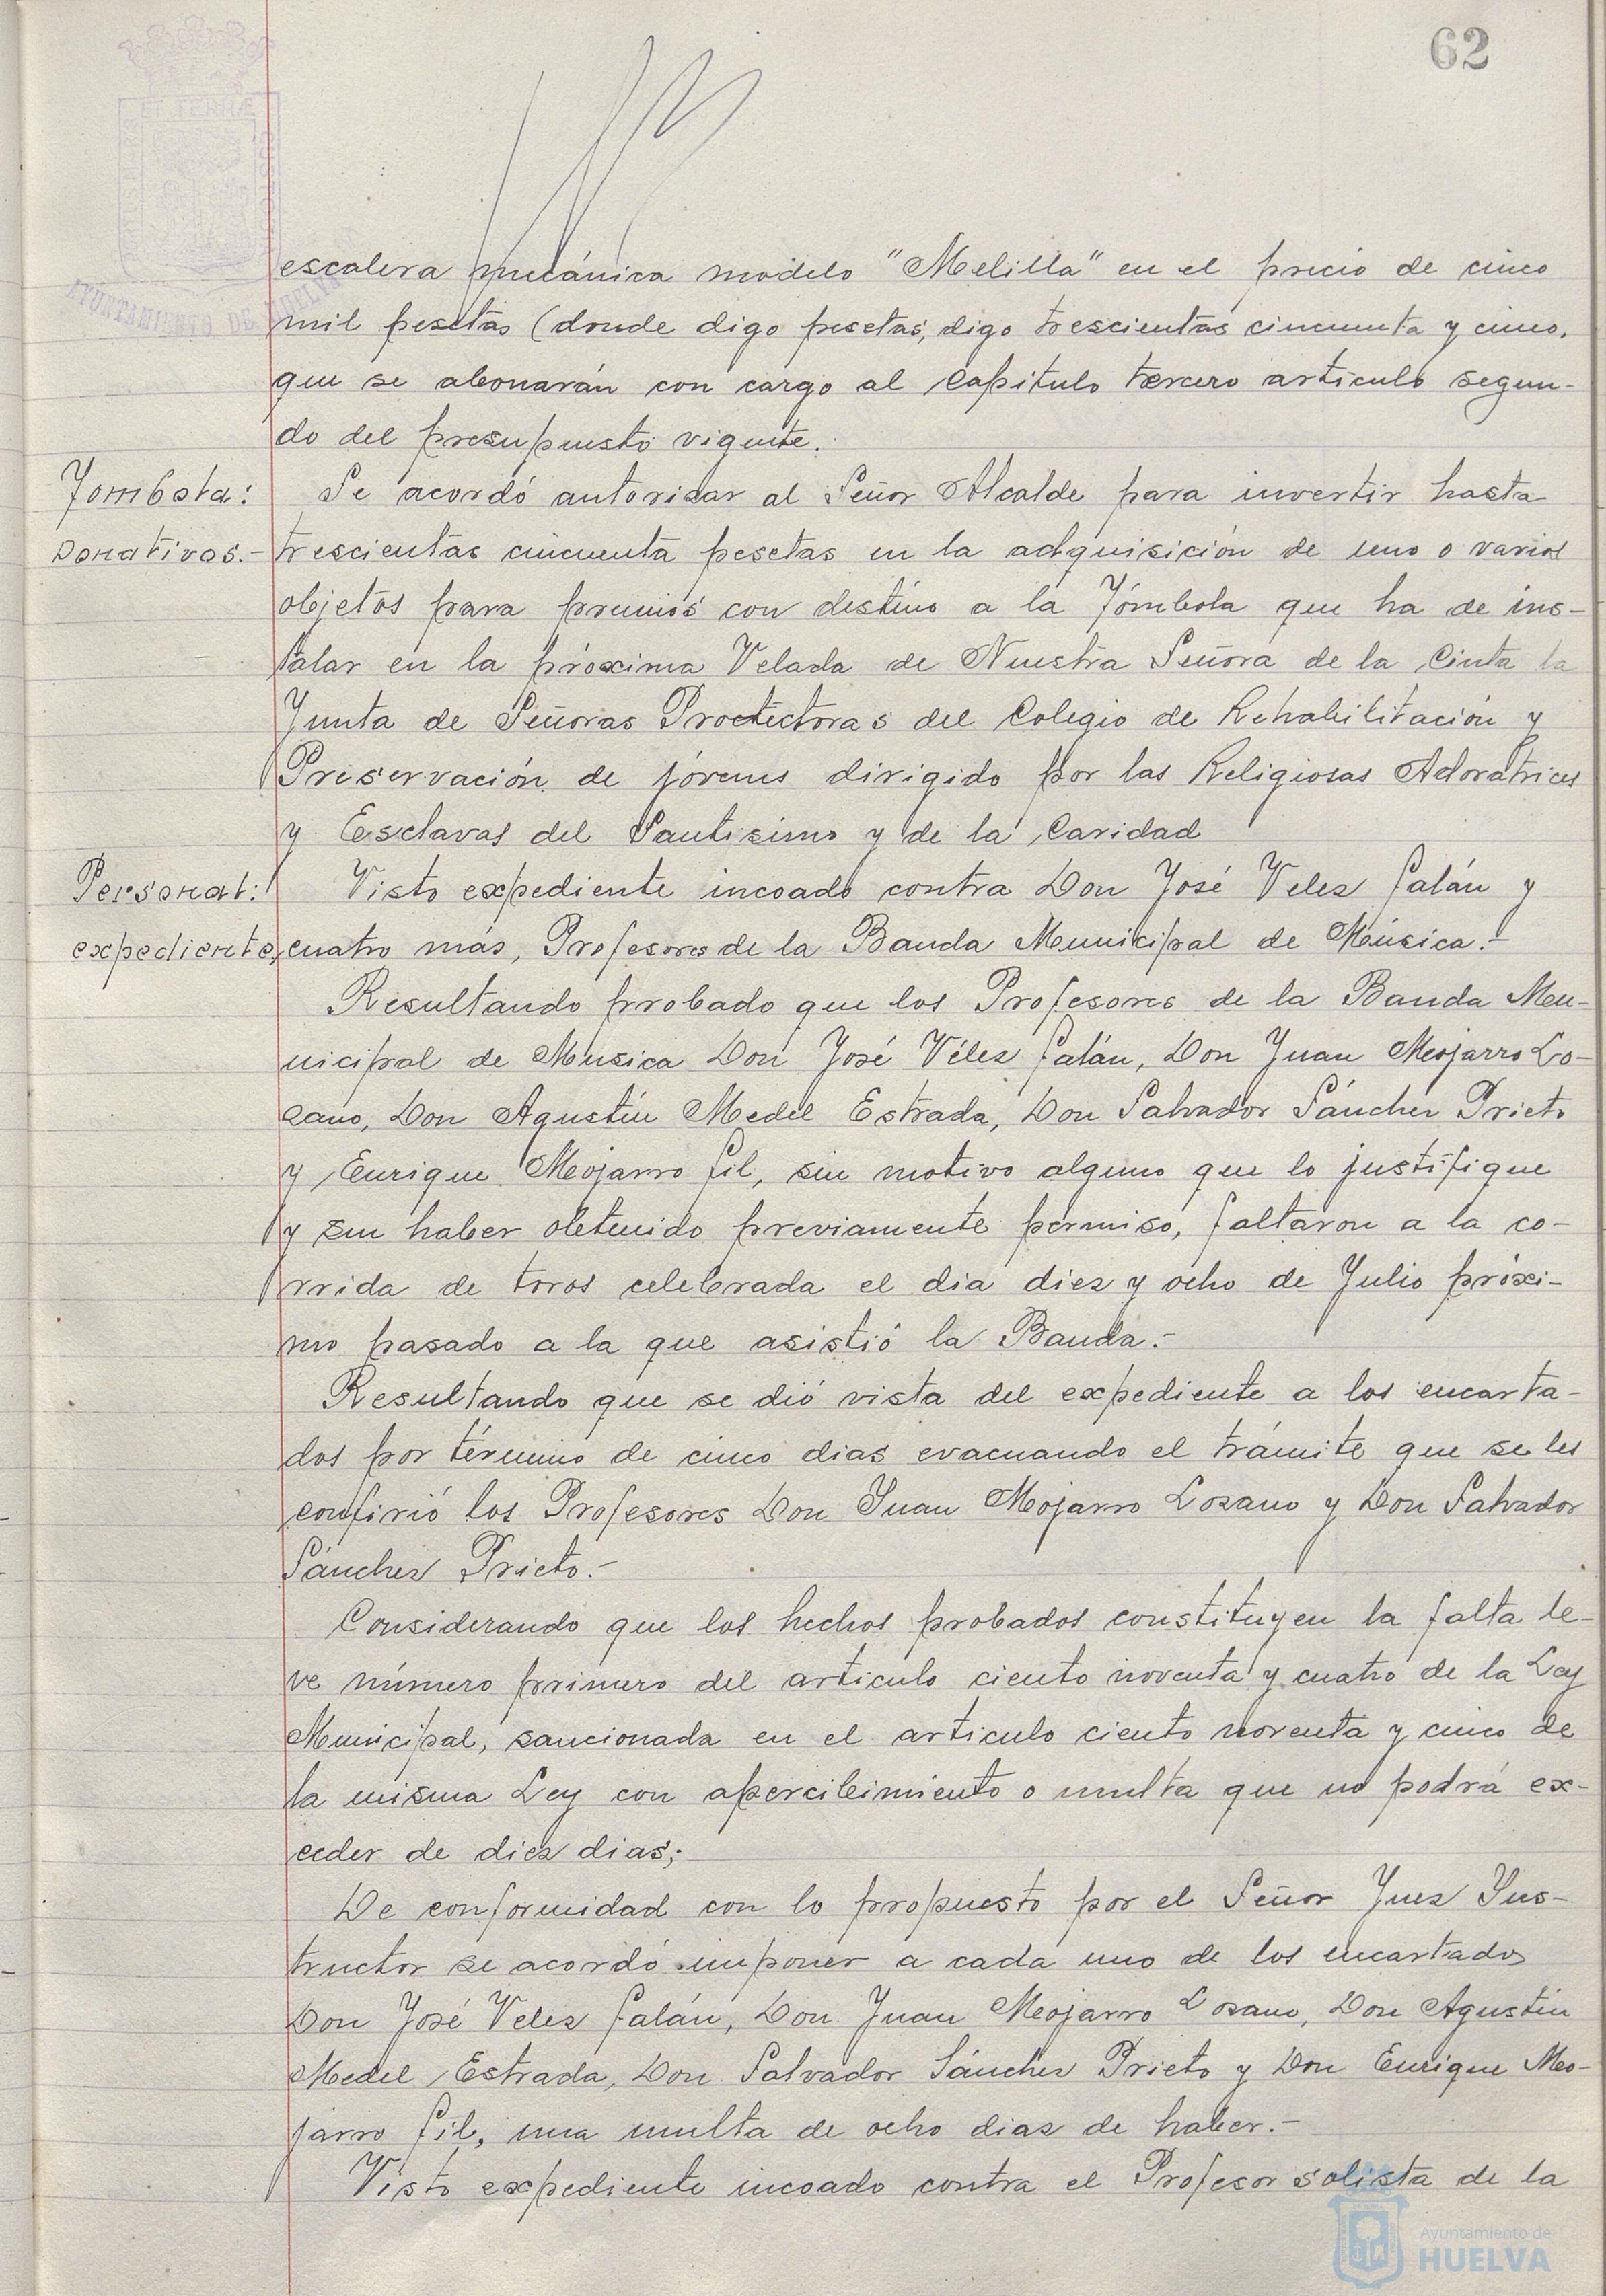 62
escalera mecánica modelo "Melilla" en el precio de cinco
mil pesetas (donde digo pesetas, digo trescientas cincuenta y cinco,
que se abonarán con cargo al Capitulo tercero articulo segun-
do del presupuesto vigente.
Tombola: Se acordó autorizar al Señor Alcalde para invertir hasta
Donativos.- trescientas cincuenta pesetas en la adquisición de uno o varios
objetos para premios con destino a la Tómbola que ha de ins-
talar en la próxima Velada de Nuestra Señora de la Cinta la
Junta de Señoras Proctectoras del Colegio de Rehabilitación y
Preservación de jóvenes dirigido por las Religiosas Adoratrices
y Esclavas del Santisimo y de la Caridad
Personal: Visto expediente incoado contra Don José Velez Galán y
expediente, cuatro más, Profesores de la Banda Municipal de Música.-
Resultando probado que los Profesores de la Banda Mu-
nicipal de Musica Don José Vélez Galán, Don Juan Mojarro Lo-
zano, Don Agustín Medel Estrada, Don Salvador Sánchez Prieto
y Enrique Mojarro Gil, sin motivo alguno que lo justifique
y sin haber obtenido previamente permiso, faltaron a la co-
rrida de toros celebrada el dia diez y ocho de Julio próxi-
mo pasado a la que asistió la Banda.-
Resultando que se dió vista del expediente a los encarta-
dos por término de cinco dias evacuando el trámite que se les
confirió los Profesores Don Juan Mojarro Lozano y Don Salvador
Sánchez Prieto.-
Considerando que los hechos probados constituyen la falta le-
ve número primero del articulo ciento noventa y cuatro de la Ley
Municipal, sancionada en el articulo ciento noventa y cinco de
la misma Ley con apercibimiento o multa que no podrá ex-
ceder de diez dias;
De conformidad con lo propuesto por el Señor Juez Ins-
tructor se acordó imponer a cada uno de los encartados
Don José Velez Galán, Don Juan Mojarro Lozano, Don Agustín
Medel Estrada, Don Salvador Sánchez Prieto y Don Enrique Mo-
jarro Gil, una multa de ocho dias de haber.-
Visto expediente incoado contra el Profesor solista de la
AYUNTAMIENTO DE HUELVA
Ayuntamiento de
HUELVA